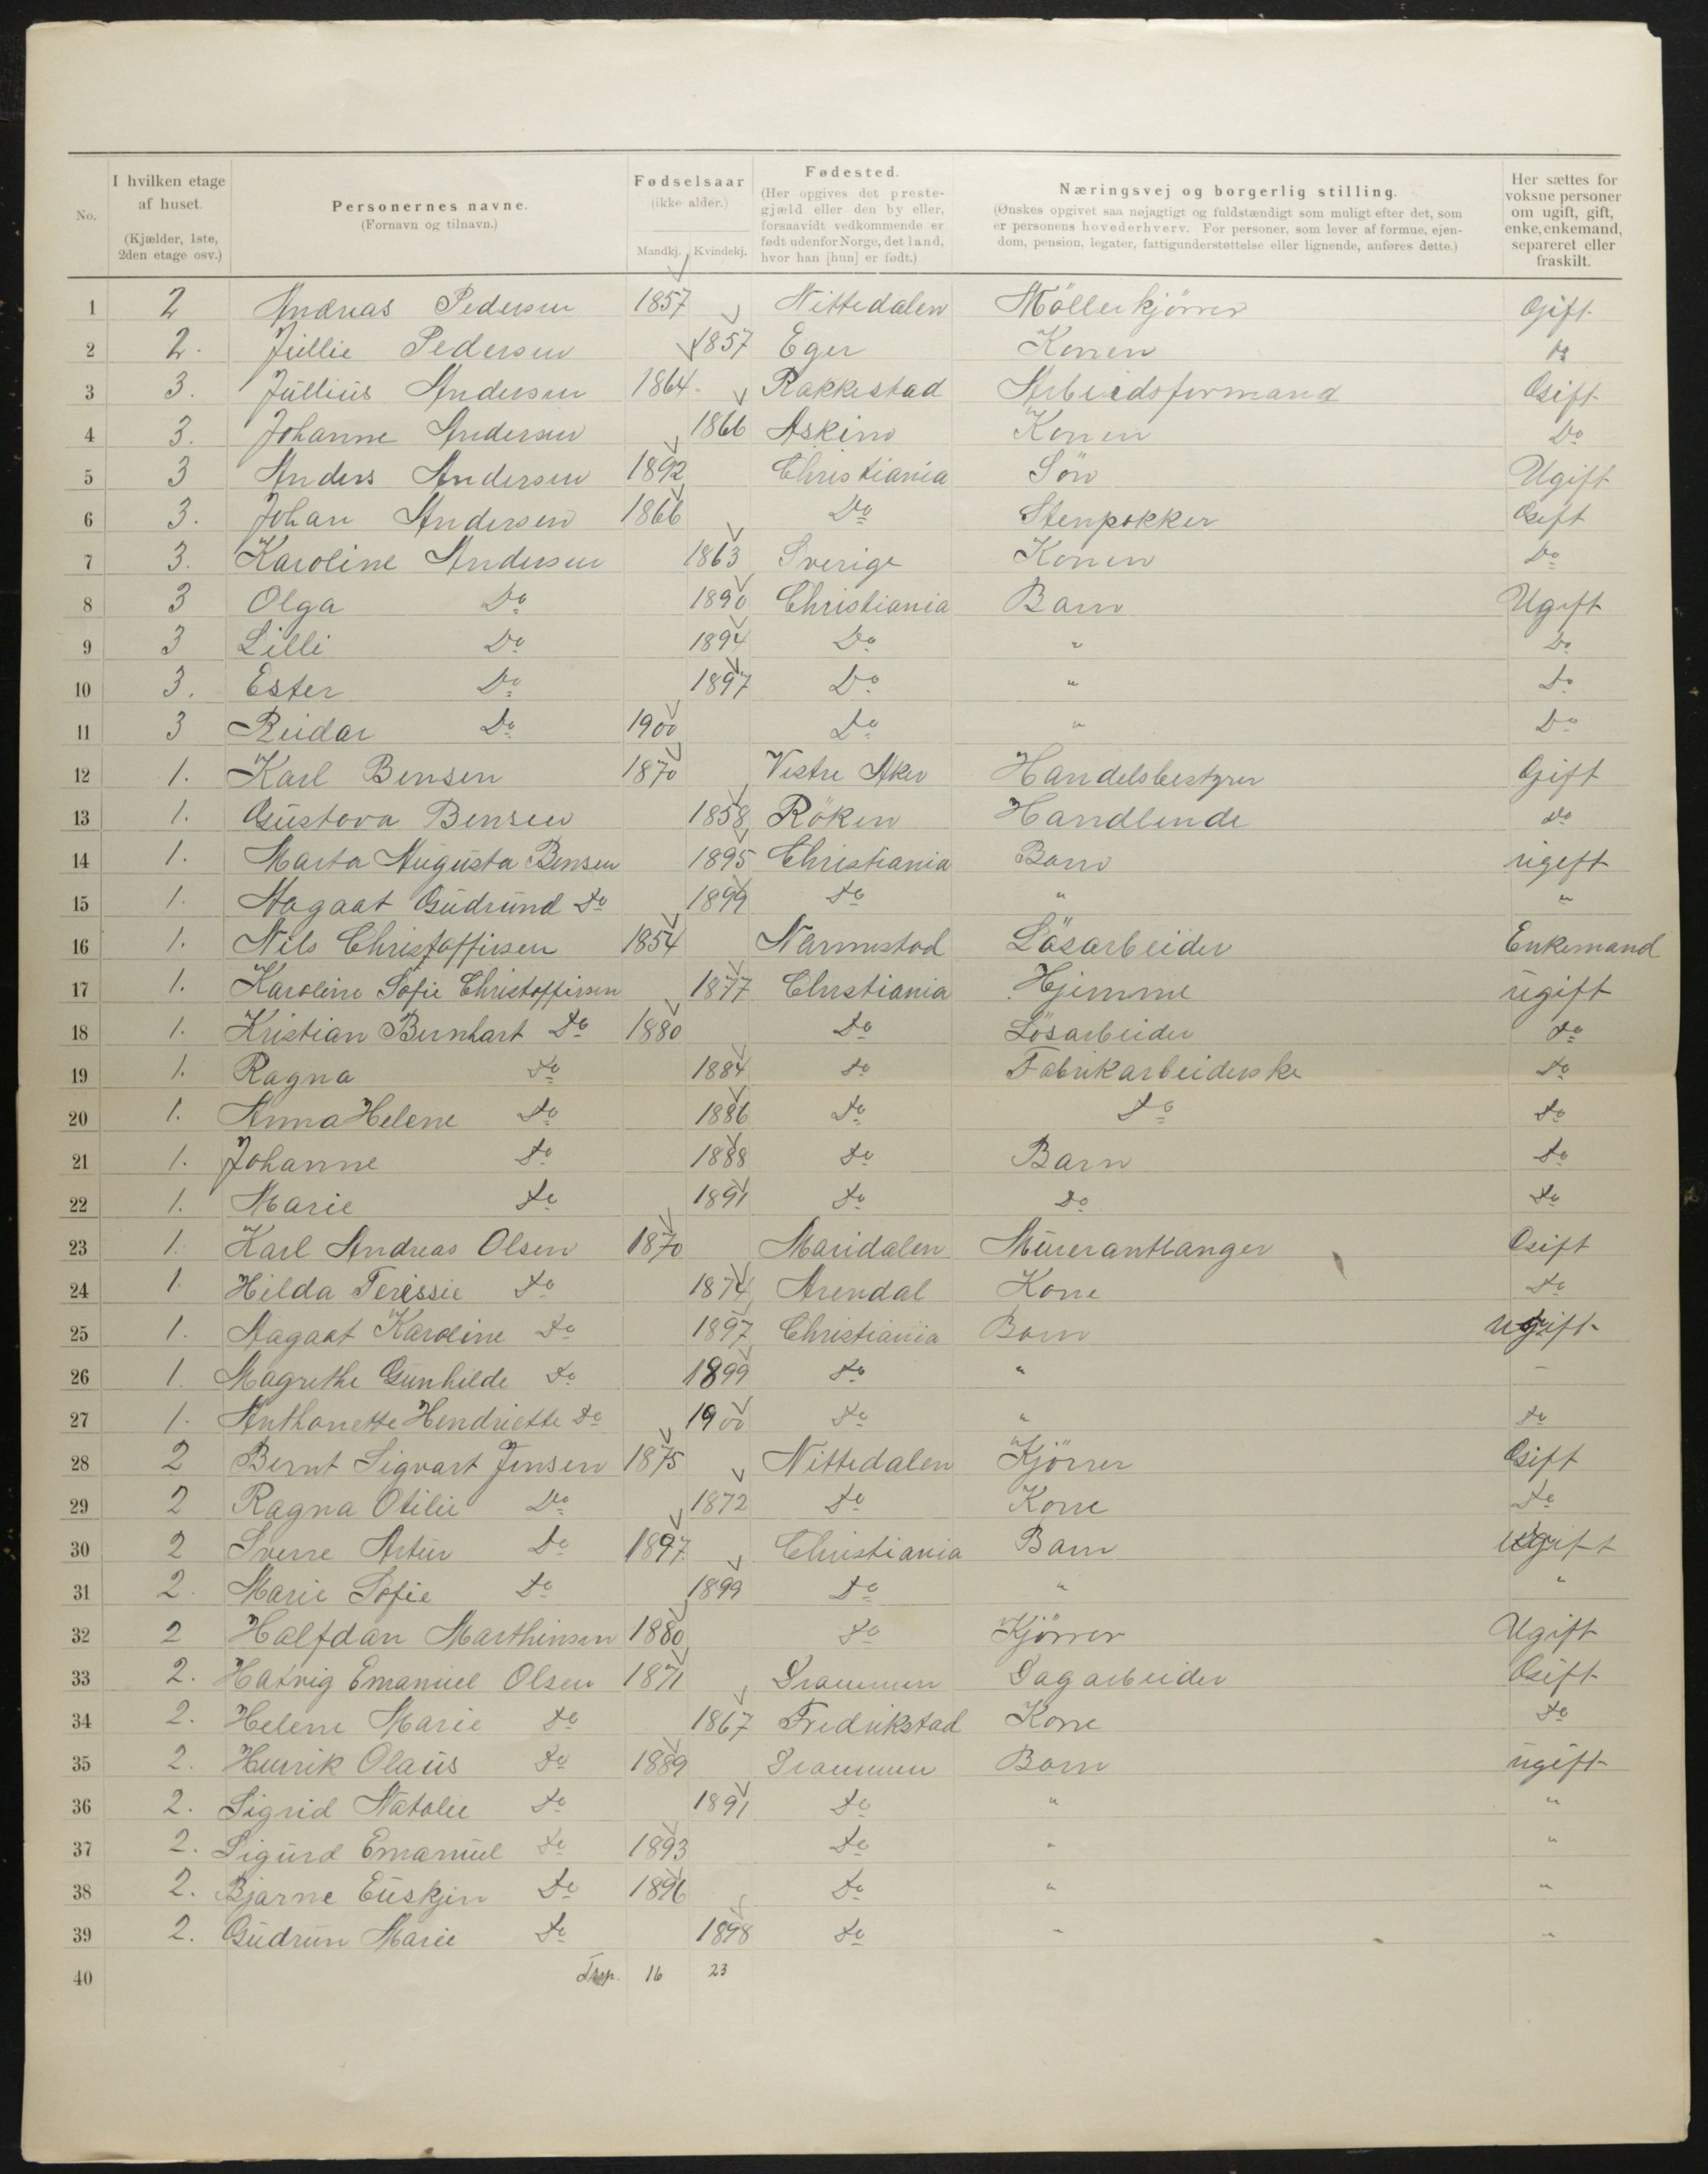 No.
I hvilken etage af huset. (Kjælder, 1ste, 2den etage osv.)
Personernes navne. (Fornavn og tilnavn.)
Fødselsaar (ikke alder.) Mandkj. Kvindekj.
Fødested. (Her opgives det prestegjæld eller den by eller, forsaavidt vedkommende er født udenfor Norge, det land, hvor han [hun] er født.)
Næringsvej og borgerlig stilling. (Ønskes opgivet saa nøjagtigt og fuldstændigt som muligt efter det, som er personens hovederhverv. For personer, som lever af formue, ejendom, pension, legater, fattigunderstøttelse eller lignende, anføres dette.)
Her sættes for voksne personer om ugift, gift, enke, enkemand, separeret eller fraskilt.
1 2 Andreas Pedersen 1857 Nittedalen Möllerkjörer Gift
2 2. Jullie Pedersen 1857 Eger Konen Do
3 3. Jullius Andersen 1864 Rakkestad Arbeidsformand Gift
4 3. Johanne Andersen 1866 Askim Konen Do
5 3 Anders Andersen 1892 Christiania Sön Ugift
6 3. Johan Andersen 1866 Do Stenpokker Gift
7 3. Karoline Andersen 1863 Sverige Konen Do
8 3 Olga Do 1890 Christiania Barn Ugift
9 3 Lilli Do 1894 Do " Do
10 3. Ester Do 1897 Do " Do
11 3 Reidar Do 1900 Do " Do
12 1. Karl Bensen 1870 Vestre Aker Handelsbestyrer Gift
13 1. Gustava Bensen 1858 Röken Handlende Do
14 1. Marta Augusta Bensen 1895 Christiania Barn ugift
15 1. Aagaat Gudrund Do 1899 Do " "
16 1. Nils Christoffersen 1854 Nannestad Lösarbeider Enkemand
17 1. Karoline Sofie Christoffersen 1877 Christiania Hjemme ugift
18 1. Kristian Bernhart Do 1880 Do Lösarbeider Do
19 1. Ragna Do 1884 Do Fabrikarbeiderske Do
20 1. Anna Helene Do 1886 Do Do Do
21 1. Johanne Do 1888 Do Barn Do
22 1. Marie Do 1891 Do Do Do
23 1. Karl Andreas Olsen 1870 Maridalen Murerantlanger Gift
24 1. Hilda Terissie Do 1874 Arendal Kone Do
25 1. Aagaat Karoline Do 1897 Christiania Barn Ugift
26 1. Magrethe Gunhilde Do 1899 Do " "
27 1. Anthonette Hendriette Do 1900 Do " Do
28 2 Bernt Sigvart Jensen 1875 Nittedalen Kjörer Gift
29 2 Ragna Otilie Do 1872 Do Kone Do
30 2 Sverre Artur Do 1897 Christiania Barn Ugift
31 2. Marie Sofie Do 1899 Do " "
32 2 Halfdan Marthinsen 1880 Do Kjörer Ugift
33 2. Hatvig Emanuel Olsen 1871 Drammen Sagarbeider Gift
34 2. Helene Marie Do 1867 Fredrikstad Kone Do
35 2. Henrik Olaus Do 1889 Drammen Barn ugift
36 2. Sigrid Natalie Do 1891 Do " "
37 2. Sigurd Emanuel Do 1893 Do " "
38 2. Bjarne Euskjen Do 1896 Do " "
39 2. Gudrun Marie Do 1898 Do " "
40 16 23